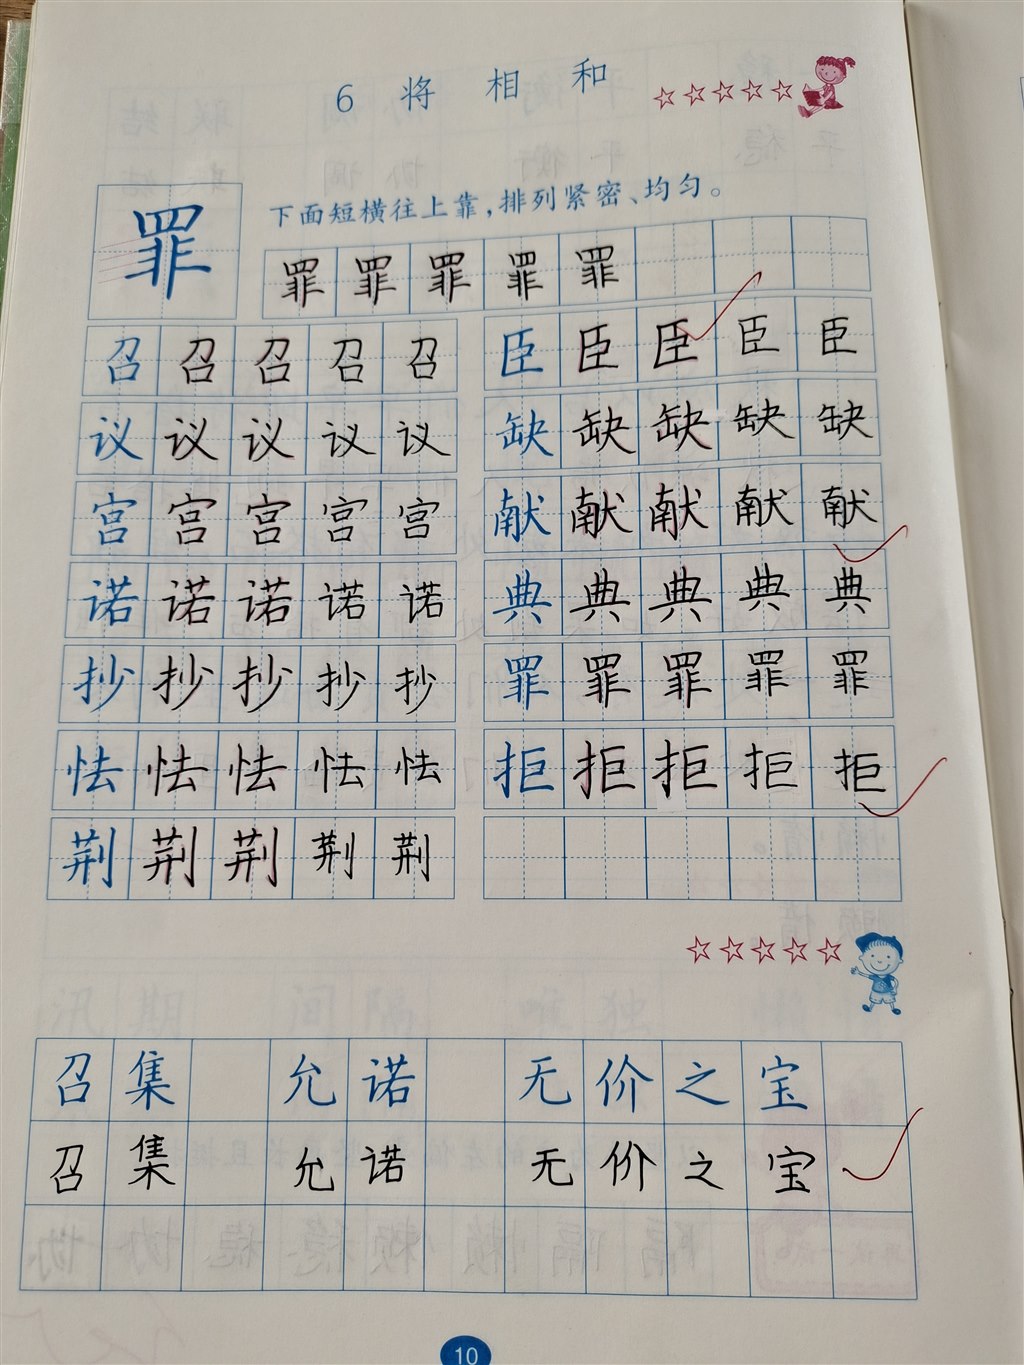 6 将相和
下面短横往上靠，排列紧密、均匀。
罪
罪罪罪罪罪
召召召召召
臣臣臣臣臣
议议议议议
缺缺缺缺缺
宫宫宫宫宫
献献献献献
诺诺诺诺诺
典典典典典
抄抄抄抄抄
罪罪罪罪罪
怯怯怯怯怯
拒拒拒拒拒
荆荆荆荆荆
召集 允诺 无价之宝
召集 允诺 无价之宝
10